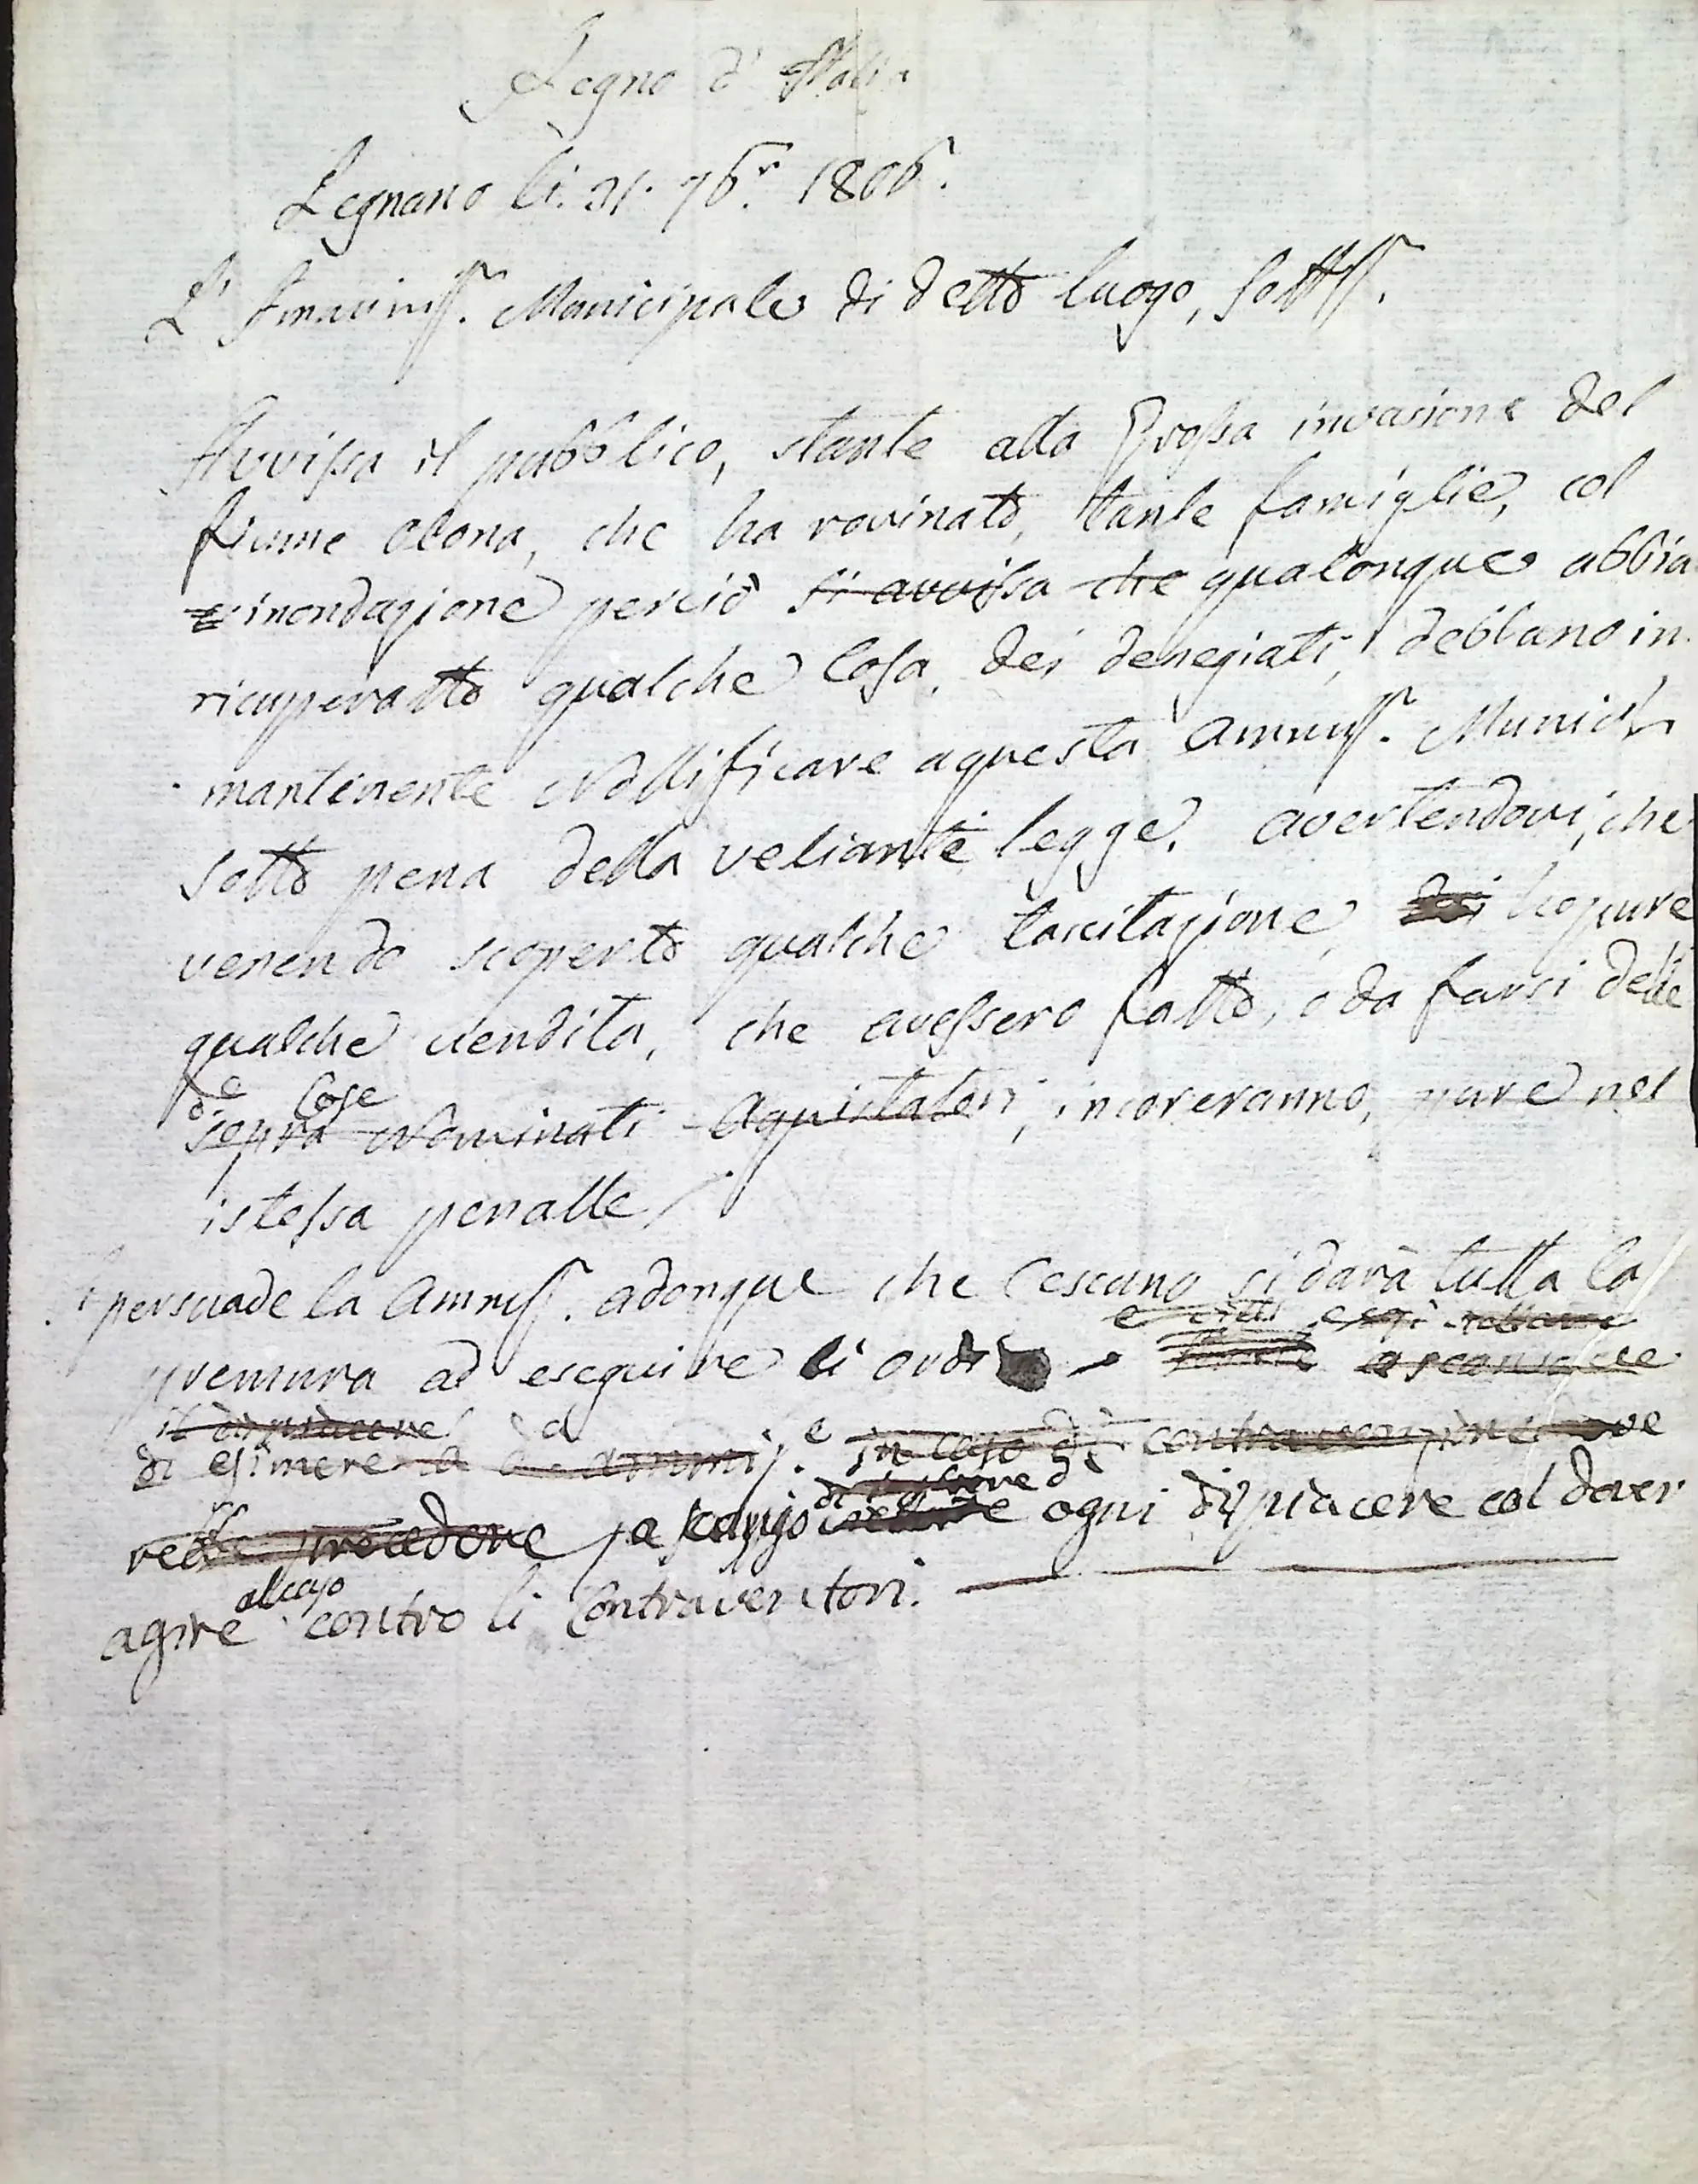 Regno d' Italia
Legnano li. 21. 7b.r 1806.
L' Amminiss. Municipale di detto luogo, sottss.
Avvissa il pubblico, stante alla Grossa invasione del
fiume Olona, che ha rovinato, tante famiglie, col
inondazione perciò si avvissa che qualonque abbia
ricuperatto qualche Cosa, dei denegiati, debbano in
mantenente Nottificare aquesta Ammiss. Municip
sotto pena della veliante legge. avertendovi, che
venendo scoperto qualche tascitazione, seopure
qualche vendita, che avessero fatto, o da farsi delle
de Cose
sopra Nominati Aquistatori, incoreranno, pure nel
istessa penalle
Si persuade la Ammiss. adonque che Cescuno si darà tutta la
premura ad eseguire li ordi
il dispiacere
di esimere a in caso di contravenzione dove
procedere ogni dispiacere col dover
al caso
agire contro li Contraventori.